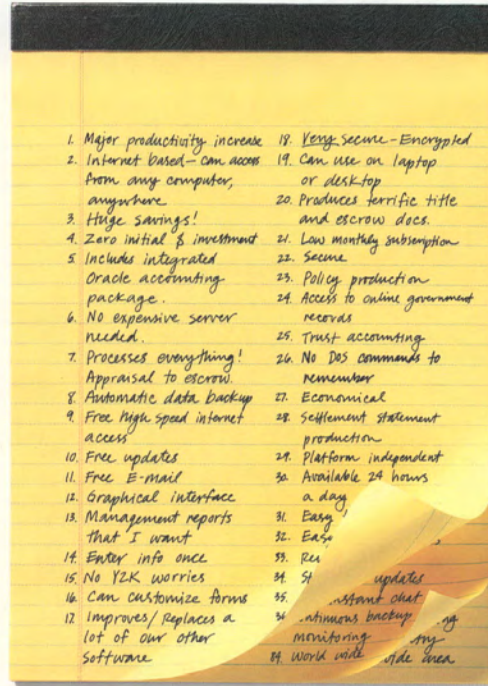 1. Major productivity increase
2. Internet based - can access
from any computer,
anywhere
3. Huge savings!
4. Zero initial $ investment
5. Includes integrated
Oracle accounting
package.
6. No expensive server
needed.
7. Processes everything!
Appraisal to escrow.
8. Automatic data backup
9. Free high speed internet
access
10. Free updates
11. Free E-mail
12. Graphical interface
13. Management reports
that I want
14. Enter info once
15. No Y2K worries
16. Can customize forms
17. Improves/Replaces a
lot of our other
software
18. Very secure - Encrypted
19. Can use on laptop
or desktop
20. Produces terrific title
and escrow docs.
21. Low monthly subscription
22. Secure
23. Policy production
24. Access to online government
records
25. Trust accounting
26. No DOS commands to
remember
27. Economical
28. Settlement statement
production
29. Platform independent
30. Available 24 hours
a day
31. Easy
32.
33.
34. updates
35. instant chat
36. backup
monitoring
84. World wide wide area